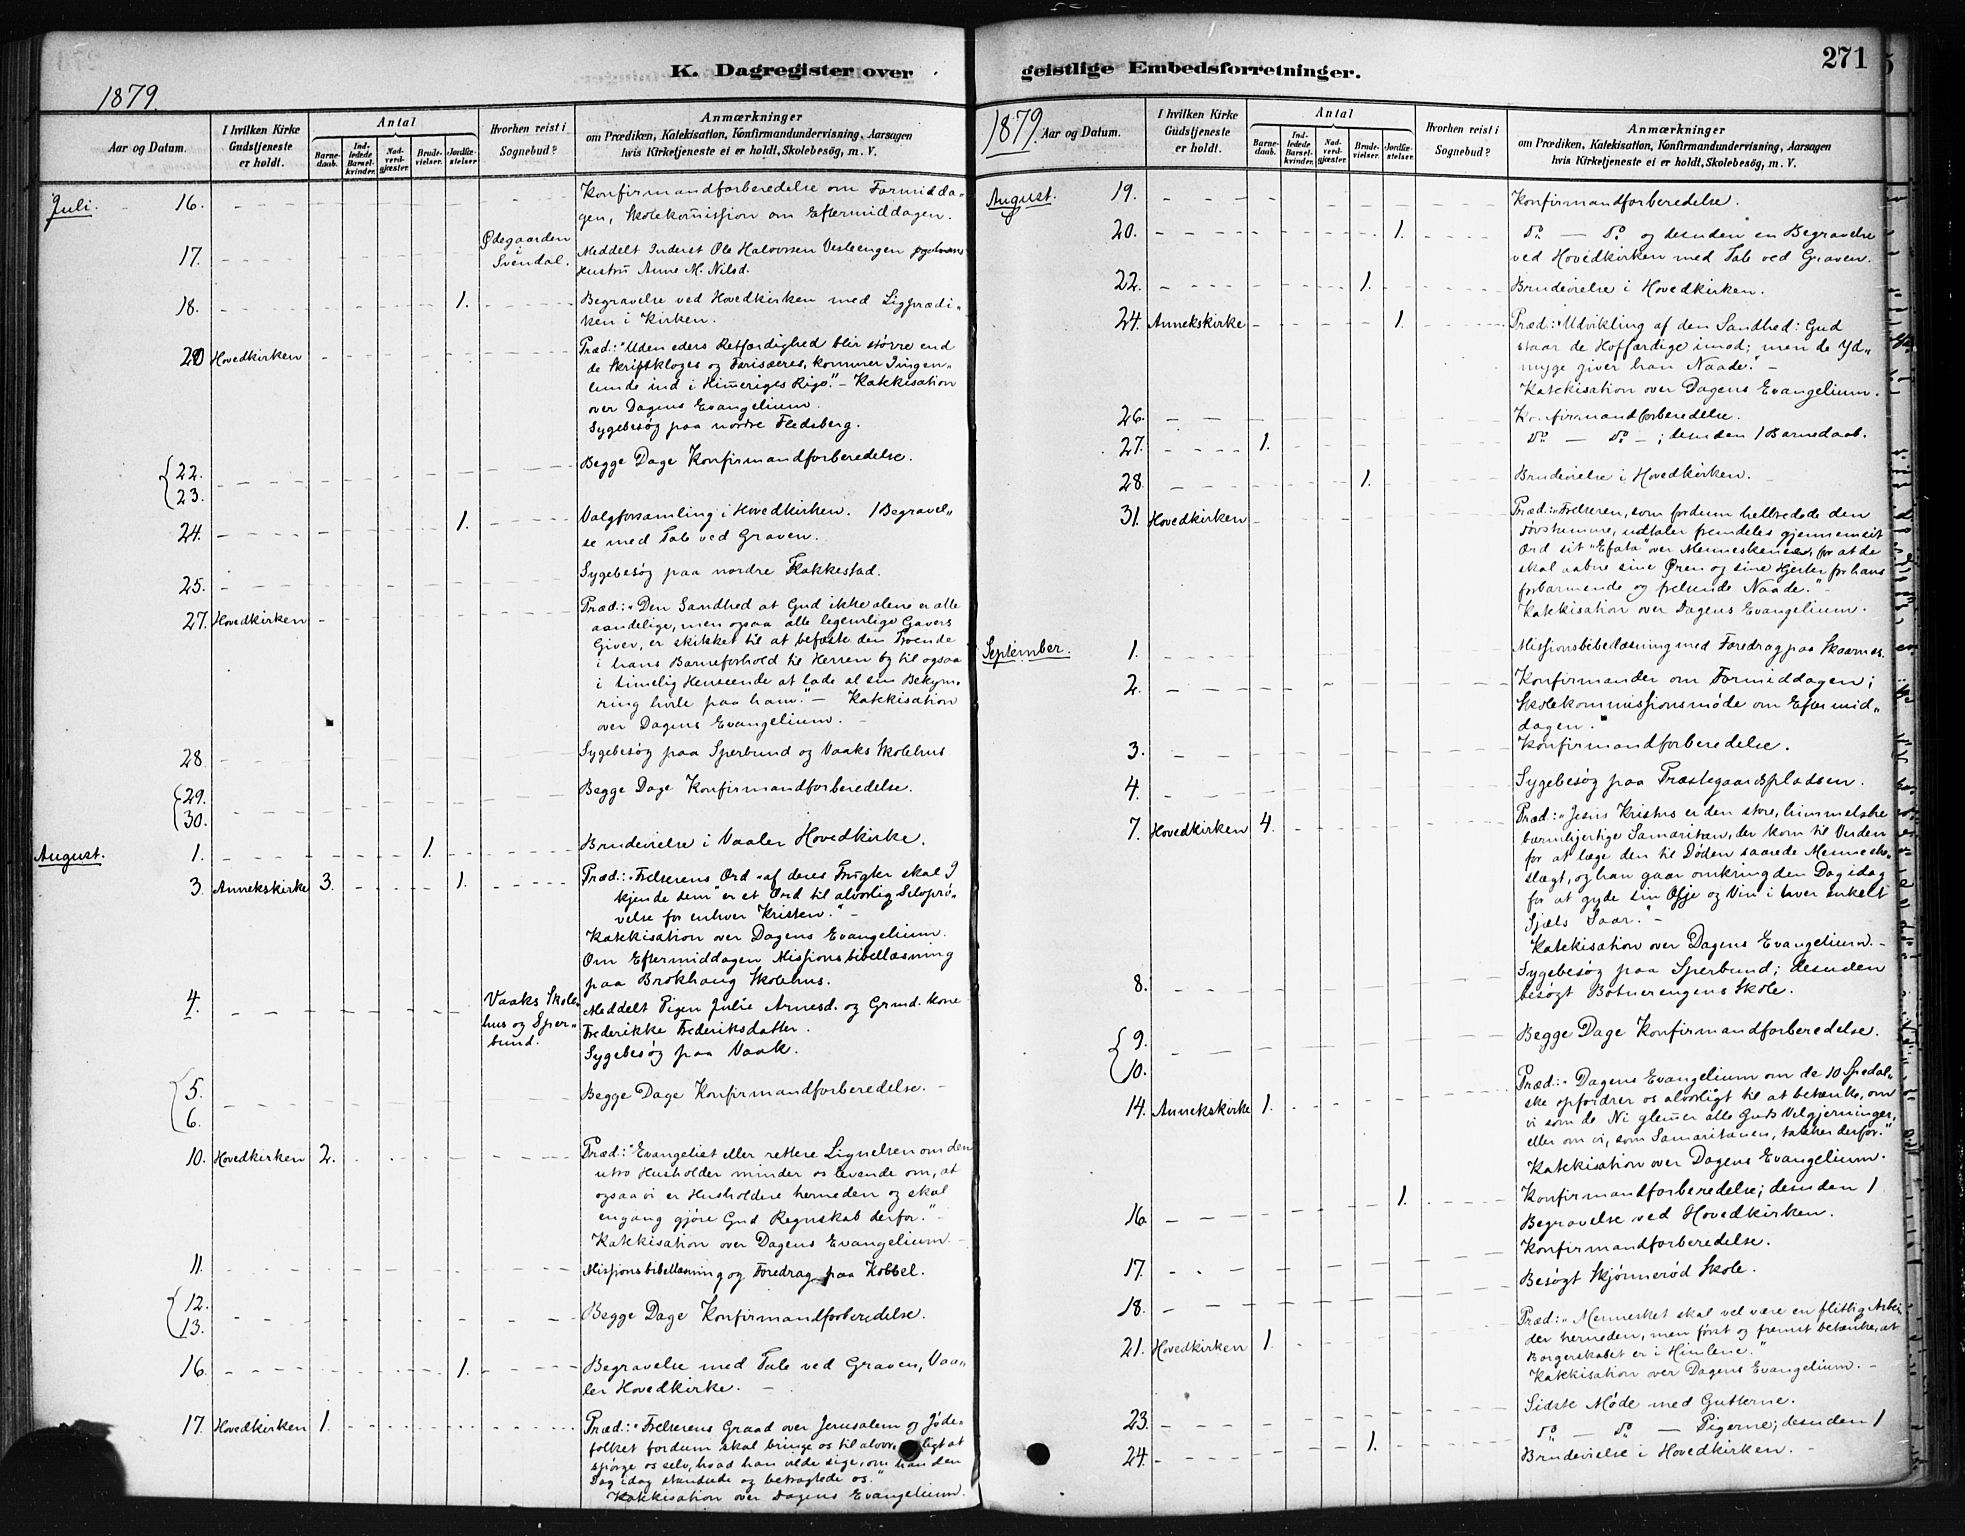 K. Dagregister over
1879.
Aar og Datum.
I hvilken Kirke Gudstjeneste er holdt.
Antal
Barnedaab.
Indledede Barselkvinder.
Nadverdgjæster.
Brudevielser.
Jordfæstelser.
Hvorhen reist i Sognebud?
Anmærkninger
om Prædiken, Katekisation, Konfirmandundervisning, Aarsagen
hvis Kirketjeneste ei er holdt, Skolebesøg, m. V.
Juli. 16. Konfirmandforberedelse om Formidda-
gen, Skolekom̄ission om Eftermiddagen.
17. Ødegaarden i Svendal. Meddelt Inderst Ole Halvorsen Vesleengen
Hustru Anne M. Nilsd.
18. 1. Begravelse ved Hovedkirken med Ligprædi-
ken i Kirken.
20 Hovedkirken Præd: "Uden eders Retfærdighed blir større end
de Skriftkloges og Farisæeres, kommer I ingen-
lunde ind i Him̄eriges Rige." - Katekisation
over Dagens Evangelium.
Sygebesøg paa nordre Fledsberg.
{22. 23. Begge Dage Konfirmandforberedelse.
24. 1. Valgforsamling i Hovedkirken. 1 Begravel-
se med Tale ved Graven.
25. Sygebesøg paa nordre Flakkestad.
27. Hovedkirken Præd.: "Den Sandhed at Gud ikke alene er alle
aandelige, men ogsaa alle legemlige Gavers
Giver, er skikket til at befæste den Troende
i hans Barneforhold til Herren og til ogsaa
i timelig Henseende at lade al sin Bekym-
ring hvile paa ham." - Katekisation
over Dagens Evangelium. -
28 Sygebesøg paa Sperbund og Vaaks Skolehus
{29. 30. Begge Dage Konfirmandforberedelse.
August. 1. 1. Brudevielse i Vaaler Hovedkirke.
3. Annekskirke 3. 1. Præd.: "Frelserens Ord "af deres Frugter skal I
kjende dem" er et Ord til alvorlig Selvprø-
velse for enhver Kristen." -
Katekisation over Dagens Evangelium.
Om Eftermiddagen Missionsbibellæsning
paa Brokhaug Skolehus.
4. Vaaks Skolehus og Sperbund. Meddelt Pigen Julie Arnesd. og Grmd. kone
Frederikke Frederiksdatter.
Sygebesøg paa Vaak.
{5. 6. Begge Dage Konfirmandforberedelse. -
10. Hovedkirken 2. Præd: "Evangeliet eller rettere Lignelsen om den
utro Husholder minder os levende om, at
ogsaa vi er Husholdere herneden og skal
engang gjøre Gud Regnskab derfor." -
Katekisation over Dagens Evangelium. -
11. Missionsbibellæsning og Foredrag paa Kobbel.
{12. 13. Begge Dage Konfirmandforberedelse.
16. 1. Begravelse med Tale ved Graven, Vaa-
ler Hovedkirke. -
17. Hovedkirken 1. Præd: "Frelserens Graad over Jerusalem og Jøde-
folket fordum skal bringe os til alvorligt at
spørge os selv, hvad han vilde sige, om han den
Dag idag standede og betragtede os."
Katekisation over Dagens Evangelium.
geistlige Embedsforretninger.
271
1879.
Aar og Datum.
I hvilken Kirke Gudstjeneste er holdt.
Antal
Barnedaab.
Indledede Barselkvinder.
Nadverdgjæster.
Brudevielser.
Jordfæstelser.
Hvorhen reist i Sognebud?
Anmærkninger
om Prædiken, Katekisation, Konfirmandundervisning, Aarsagen
hvis Kirketjeneste ei er holdt, Skolebesøg, m. V.
August. 19. Konfirmandforberedelse.
20. 1. Do - Do og desuden en Begravelse
ved Hovedkirken med Tale ved Graven.
22. 1. Brudevielse i Hovedkirken.
24. Annekskirke 1. Præd: "Udvikling af den Sandhed: Gud
staar de Hoffærdige imod; men de Yd-
myge giver han Naade." -
Katekisation over Dagens Evangelium.
26. Konfirmandforberedelse.
27. 1. Do - Do - ; desuden 1 Barnedaab.
28. 1. Brudevielse i Hovedkirken.
31. Hovedkirken Præd: "Frelseren, som fordum helbredede den
Døvstumme, udtaler fremdeles gjennem sit
Ord sit "Efata" over Menneskene, for at de
skal aabne sine Øren og sine Hjerter for hans
forbarmende og frelsende Naade." -
Katekisation over Dagens Evangelium.
September. 1. Missionsbibellæsning med Foredrag paa Skaarnes.
2. Konfirmander om Formiddagen;
Skolekommissionsmøde om Eftermid-
dagen.
3. Konfirmandforberedelse.
4. Sygebesøg paa Præstegaardspladsen.
7. Hovedkirken 4. Præd: "Jesus Kristus er den store, himmelske
barmhjertige Samaritan, der kom til Verden
for at læge den til Døden saarede Menneske-
slægt, og han gaar omkring den Dag idag
for at gyde sin Olje og Vin i hver enkelt
Sjæls Saar." -
Katekisation over Dagens Evangelium. -
8. Sygebesøg paa Sperbund; desuden
besøgt Botnerengens Skole.
{9. 10. Begge Dage Konfirmandforberedelse.
14. Annekskirke 1. Præd.: "Dagens Evangelium om de 10 Spedal-
ske opfordrer os alvorligt til at betænke, om
vi som de Ni glem̄er alle Guds Velgjerninger,
eller om vi, som Samaritanen, takker derfor."
Katekisation over Dagens Evangelium.
16. 1. Konfirmandforberedelse; desuden 1
Begravelse ved Hovedkirken.
17. Konfirmandforberedelse.
18. Besøgt Skjønnerød Skole.
21. Hovedkirken 1. Præd: "Mennesket skal vel være en flittig Arbei-
der herneden, men først og fremst betænke, at
Borgerskabet er i Himlene."
Katekisation over Dagens Evangelium. -
23. Sidste Møde med Gutterne.
24. 1. Do - Do - Pigerne; desuden 1
Brudevielse i Hovedkirken. -